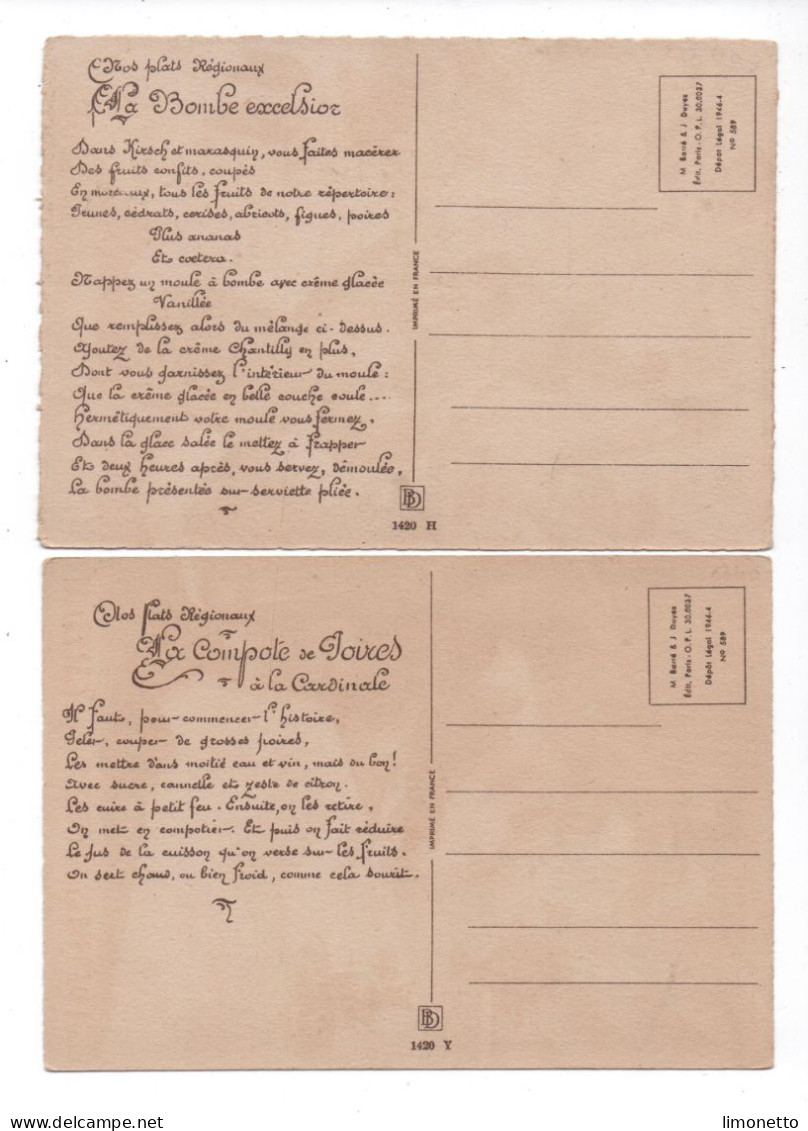 Nos plats Régionaux
La Bombe excelsior
Dans Kirsch et marasquin, vous faites macérer
Des fruits confits, coupés
En morceaux, tous les fruits de notre répertoire:
Prunes, cédrats, cerises, abricots, figues, poires
Plus ananas
Et cœtera.
Nappez un moule à bombe avec crême glacée
Vanillée
Que remplissez alors du mélange ci-dessus.
Ajoutez de la crême Chantilly en plus,
Dont vous garnissez l'intérieur du moule:
Que la crême glacée en belle couche coule....
Hermétiquement votre moule vous fermez,
Dans la glace salée le mettez à frapper
Et deux heures après, vous servez, démoulée,
La bombe présentée sur serviette pliée.
IMPRIMÉ EN FRANCE
BD
1420 H
M. Barré & J. Dayez
Édit. Paris-O.P.L. 30.0037
Dépôt Légal 1946-4
No 589
Nos plats Régionaux
La Compote de Poires
à la Cardinale
Il faut, pour commencer l'histoire,
Peler, couper de grosses poires,
Les mettre dans moitié eau et vin, mais du bon!
Avec sucre, cannelle et zeste de citron.
Les cuire à petit feu. Ensuite, on les retire,
On met en compotier. Et puis on fait réduire
Le jus de la cuisson qu'on verse sur les fruits.
On sert chaud, ou bien froid, comme cela sourit.
IMPRIMÉ EN FRANCE
BD
1420 Y
M. Barré & J. Dayez
Édit. Paris-O.P.L. 30.0037
Dépôt Légal 1946-4
No 589
limonetto